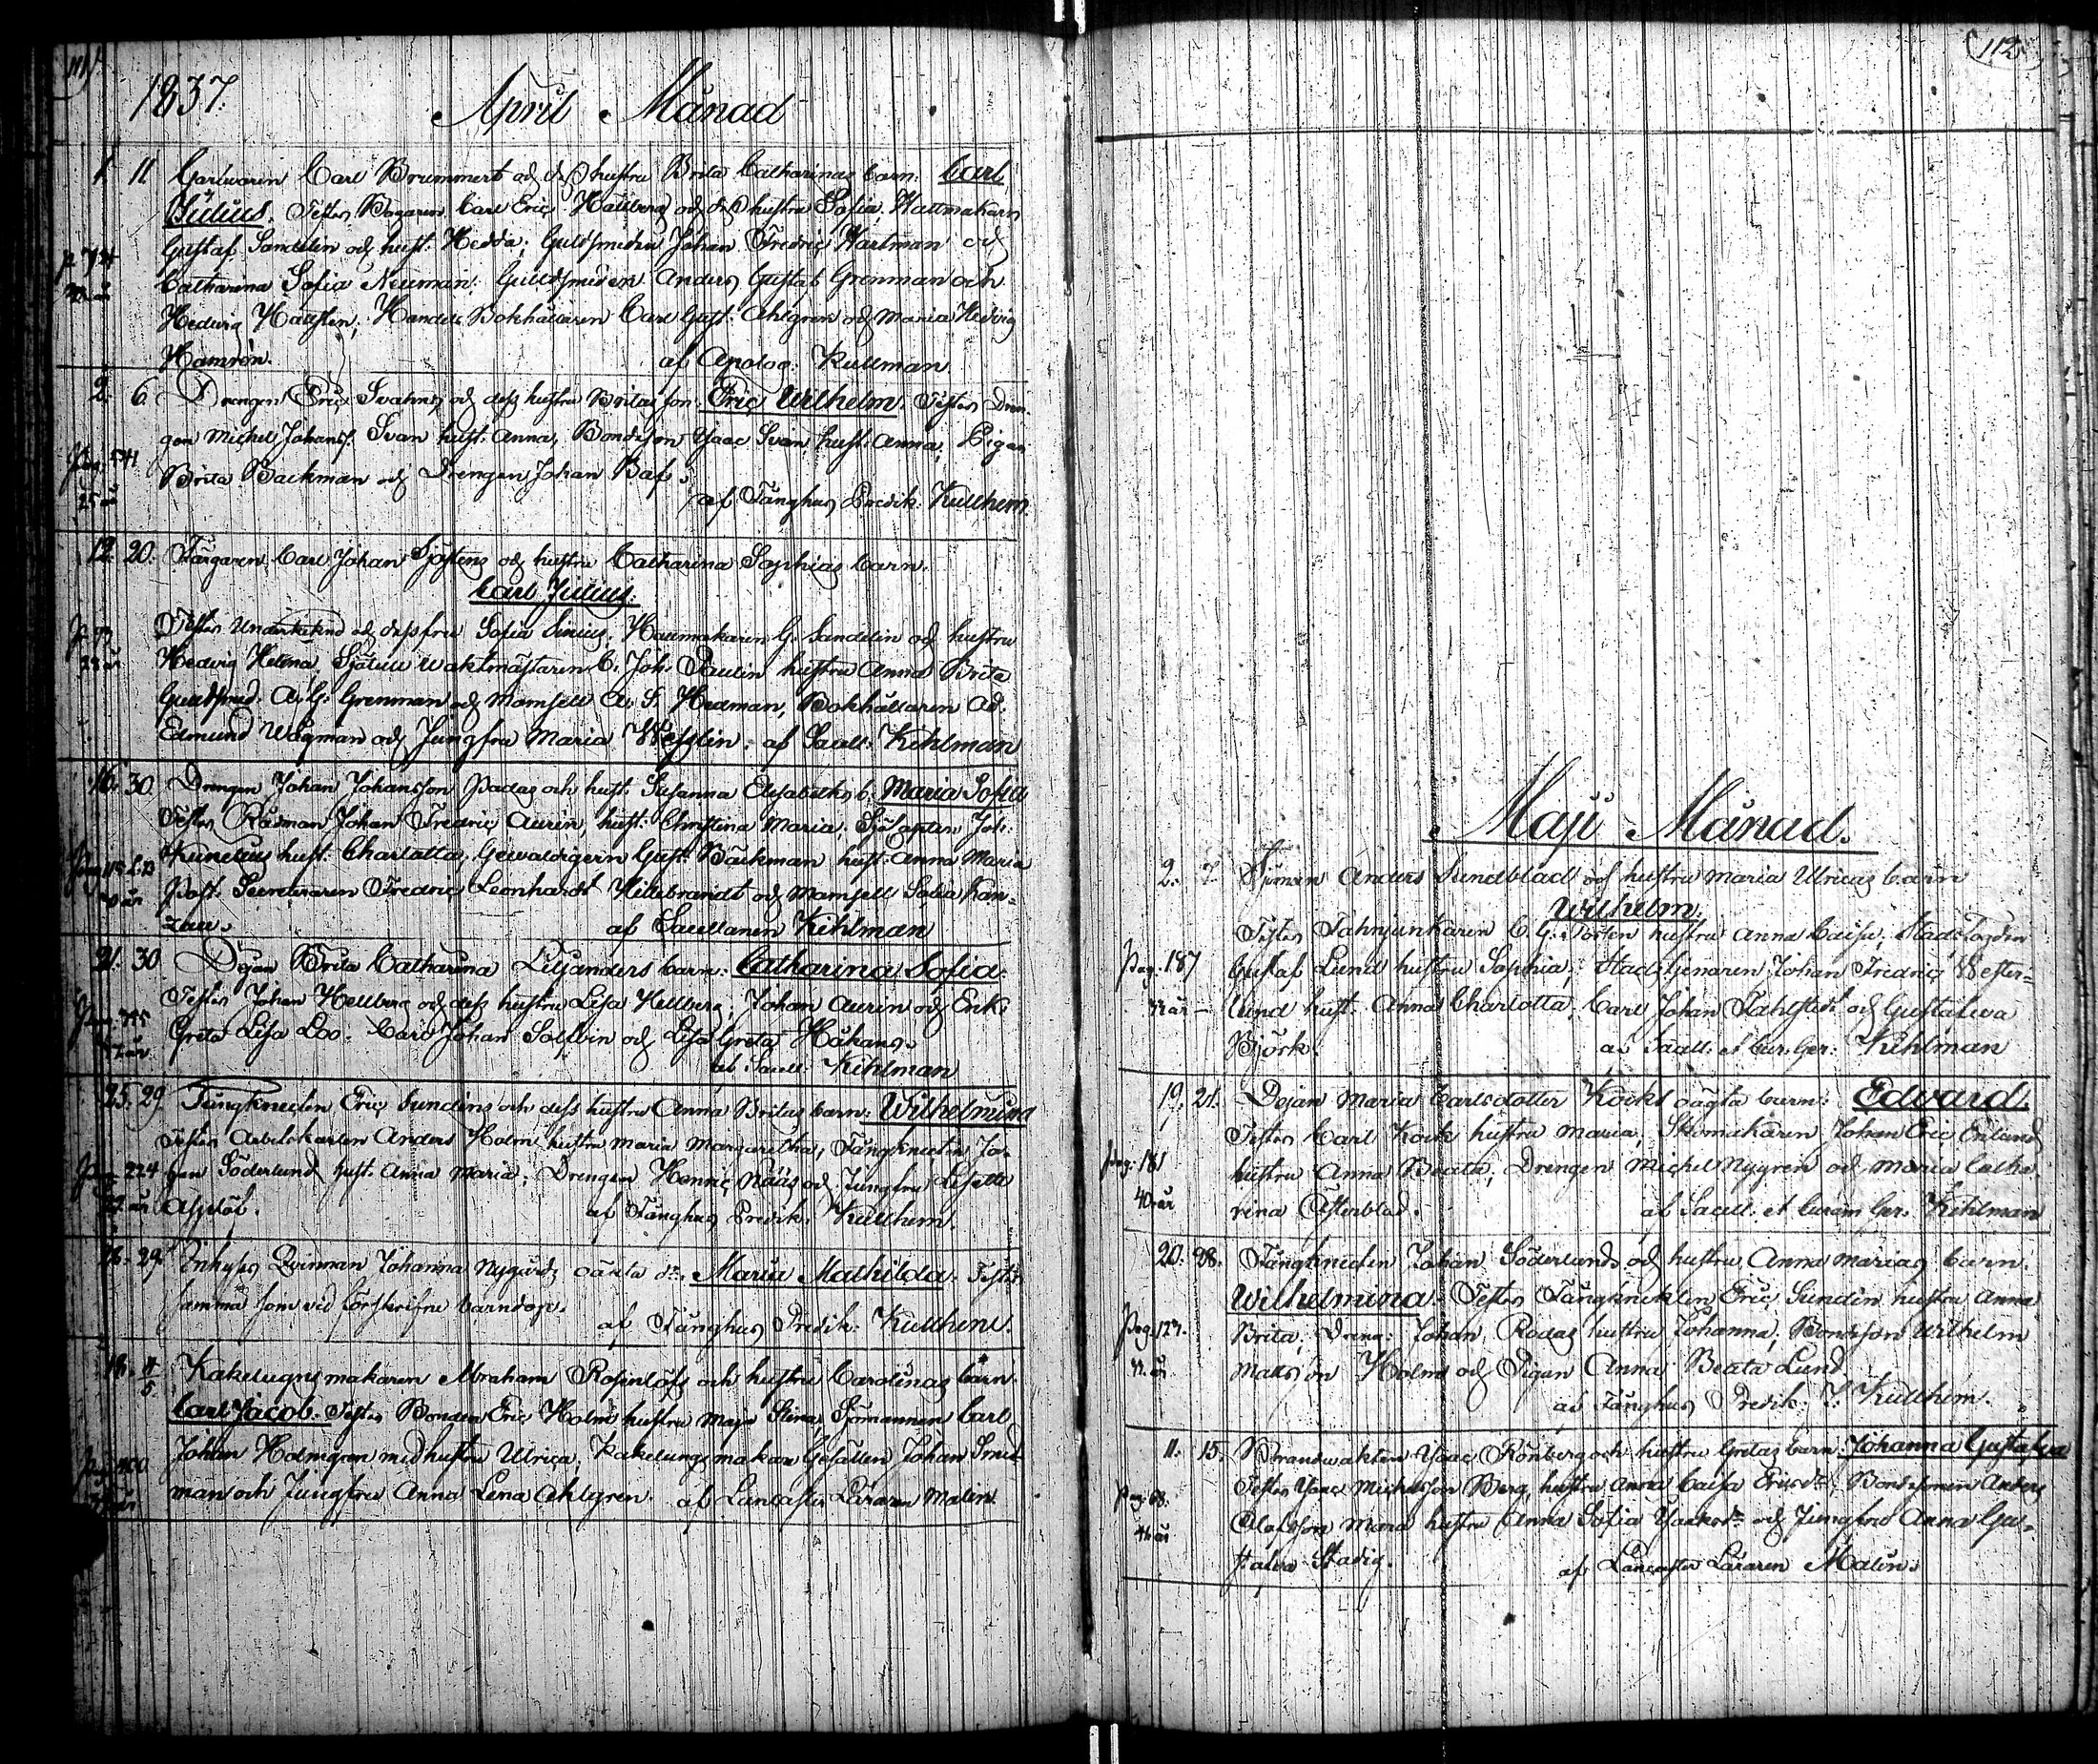 111
1837. April Månad
1. 11 Garfwaren Carl Brummert och dess hustru Brita Catharinas barn: Carl
Julius. Testes Bagaren Carl Eric Hallberg och dess hustru Sofia, Hattmakaren
Gustaf Sandelin och hust. Hedda; Guldsmeden Johan Fredric Hartman och
Catharina Sofia Neuman; Guldsmeden Anders Gustaf Grenman och
Hedvig Hallsten; Handels Bokhållaren Carl Gust. Ahlgren och Maria Hedvig
Hamrén. af Apolog. Kullman
2. 6. Drengen Eric Svahns och dess hustru Britas son Eric Wilhelm. Testes Dren-
gen Michel Johanss. Svan hust. Anna, Bondeson Isaac Svan, hust. Anna; Pigan
Pag. 541
Brita Backman och Drengen Johan Bas.
25 år
af Fånghus Predik. Kullhem.
12. 20. Färgaren Carl Johan Sjöstens och hustru Catharina Sophias barn.
Carl Julius.
Testes Underteknad och dess fru Sofia Hattmakaren G. Sandelin och hustru
Hedvig Helena, Waktmästaren C. Joh. Paulin hustru Anna Brita
Guldsmed. A. G. Grenman och Mamsell A. S. Hedman, Bokhållaren Ad.
Edmund Wegman och Jungfru Maria Wesslin. af Sacell. Kihlman
16. 30. Drengen Johan Johansson Padas och hust. Susanna Elisabeths b. Maria Sofia
Testes Rådman Johan Fredric Aurén, hust. Christina Maria. Joh.
hust. Charlotta, Gewaldigern Gust. Bäckman hust. Anna Maria
Post Secreteraren Fredric Leonhardt Hillebrandt och Mamsell
af Sacellanen Kihlman
21. 30. Dejan Brita Catharina Liljanders barn: Catharina Sofia.
Testes Johan Hellberg och dess hustru Lisa Hellberg; Johan Aurén och Erik
Greta Lisa Loo. Carl Johan och Lisa Greta Håkans.
af Sacell. Kihlman
25. 29. Fångknekten Eric Sundins och dess hustru Anna Britas barn: Wilhelmina
Testes Arbetskarlen Anders Holm hustru Maria Margaretha, Fångknekten Jo-
Pag. 224
han Söderlund hust. Anna Maria; Drengen Henric Nääs och Jungfru Lisette
Asplöf. af Fånghus Predik. Kullhem.
26. 29. Inhyses Qvinnan Johanna Nygårds oäkta dr. Maria Mathilda. Testes
samma som vid förskrifne barndop.
af Fånghus Predik: Kullhem.
18. 4/5. Kakelugnsmakaren Abraham Rosenlöfs och hustru Carolinas barn.
Carl Jacob. Testes Bonden Eric Holm hustru Maja Stina, Sjömannen Carl
Johan Holmgren med hustru Ulrica, Kakelungsmakare Gesällen Johan
man och Jungfru Anna Lena Ahlgren. af Lancaster Läraren Malin.
112
Maji Månad.
2. 7. Sjöman Anders Sundblad och hustru Maria Ulricas barn
Wilhelm.
Testes Fahnjunkaren C. G. Torsten hustru Anna Caisa; Stads
Pag: 187
Gustaf Lund hustru Sophia; Stadstjenaren Johan Fredric Wester-
lund hust. Anna Charlotta; Carl Johan Fahlstedt och Gustafva
Björk. af Sacell. et Cur. Ger: Kihlman
19. 21. Dejan Maria Carlsdotter Kocks oägta barn: Edvard.
Testes Carl Kock hustru Maria, Skomakaren Johan Eric Enlund
Pag: 181
hustru Anna Beata; Drengen Michel Nygren och Maria Catha
40 år
rina Österblad. af Sacell. et Curam Ger. Kihlman
20. 28. Fångknekten Johan Söderlunds och hustru Anna Marias barn.
Wilhelmina. Testes Fångknekten Eric Sundin hustru Anna
Pag. 127.
Brita; Dreng: Johan Rodas hustru Johanna; Bondeson Wilhelm
Matsson Holm och Pigan Anna Beata Lund.
af Fånghus Predik. J. Kullhem.
11. 15. Brandwakten Isaac Rönberg och hustru Gretas barn Johanna Gustafva
Testes Isaac Michelsson Berg, hustru Anna Caisa Ericsdr; Bondesonen Anders
Pag: 68.
Olofsson Mara hustru Anna Sofia Isaksdr och Jungfru Anna Gu-
stafva Stadig. af Lancaster Läraren Malin.